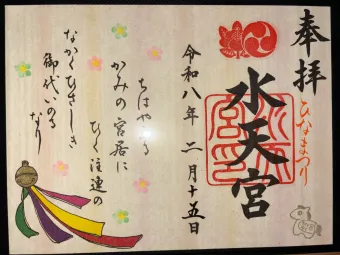 奉拝
ひなまつり
水天宮
令和八年二月十五日
ちはやふる
かみの宮居に
ひく注連の
なかくひさしき
御代いのる
なり